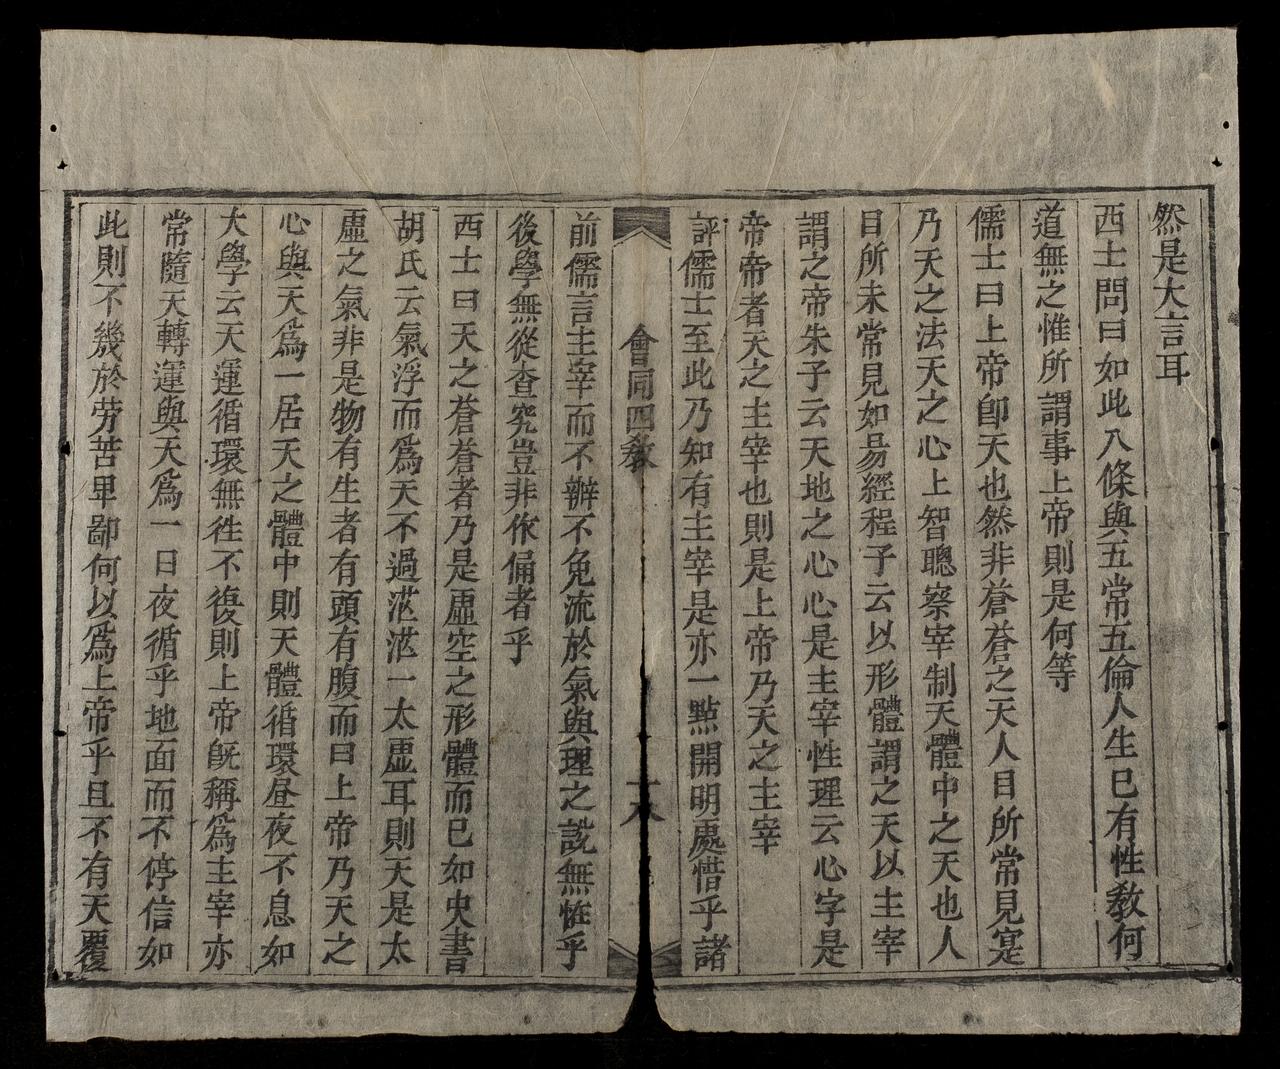 然是大言耳
西士問曰如此八條與五常五倫人生已有性教何
道無之惟所謂事上帝則是何等
儒士曰上帝卽天也然非蒼蒼之天人目所常見寔
乃天之法天之心上智聰察宰制天體中之天也人
目所未常見如易經程子云以形體謂之天以主宰
謂之帝朱子云天地之心心是主宰性理云心字是
帝帝者天之主宰也則是上帝乃天之主宰
評儒士至此乃知有主宰是亦一點開明處惜乎諸
會同四教
十八
前儒言主宰而不辦不免流於氣與理之說無惟乎
後學無從查究豈非作俑者乎
西士曰天之蒼蒼者乃是虛空之形體而已如史書
胡氏云氣浮而爲天不過茫茫一太虛耳則天是太
虛之氣非是物有生者有頭有腹而曰上帝乃天之
心與天爲一居天之體中則天體循環昼夜不息如
大學云天運循環無徃不復則上帝旣稱爲主宰亦
常隨天轉運與天爲一日夜循乎地面而不停信如
此則不幾於劳苦卑鄙何以爲上帝乎且不有天覆